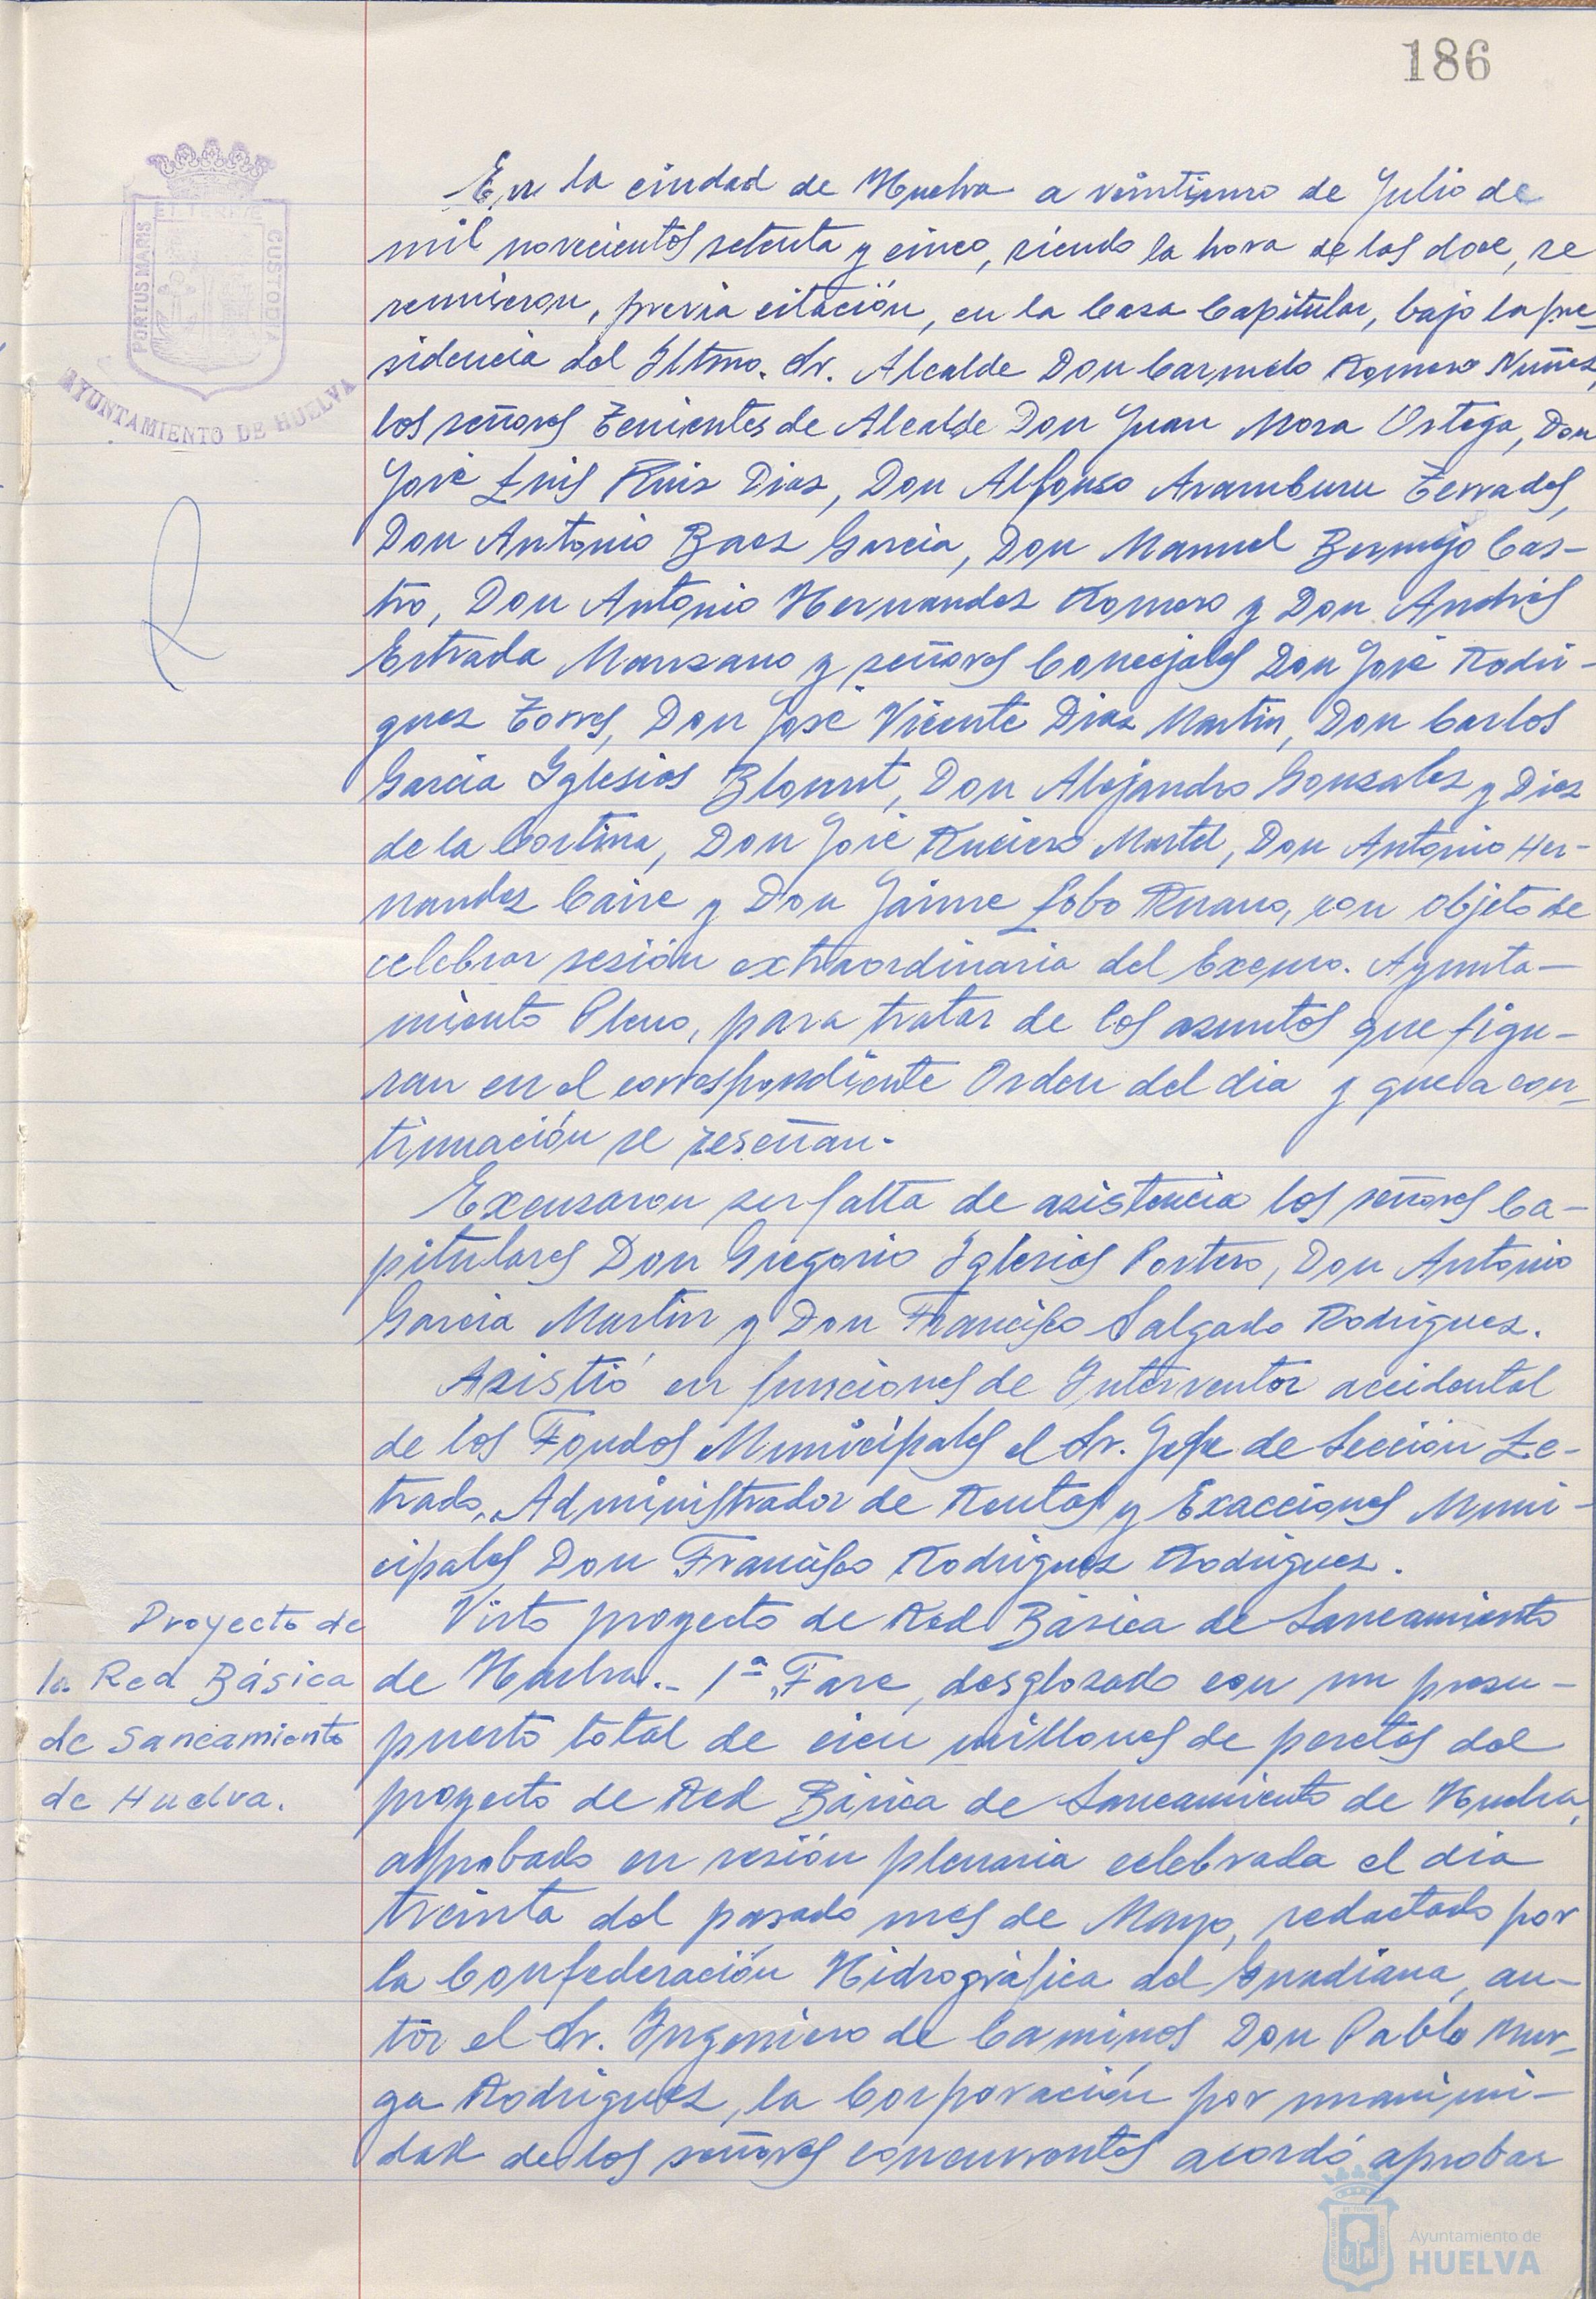 186
PORTUS MARIS
ET TERRÆ
CUSTODIA
AYUNTAMIENTO DE HUELVA
En la ciudad de Huelva a veintiuno de Julio de
mil novecientos setenta y cinco, siendo la hora de las doce, se
reunieron, previa citación, en la Casa Capitular, bajo la pre-
sidencia del Iltmo. Sr. Alcalde Don Carmelo Romero Nuñez
los señores Tenientes de Alcalde Don Juan Mora Ortega, Don
José Luis Ruiz Diaz, Don Alfonso Aramburu Terrades,
Don Antonio Baez Garcia, Don Manuel Bermejo Cas-
tro, Don Antonio Hernandez Romero y Don Andrés
Estrada Manzano y señores Concejales Don José Rodri-
guez Torres, Don José Vicente Diaz Martin, Don Carlos
Garcia Iglesias Blount, Don Alejandro Gonzalez y Diez
de la Cortina, Don José Ruciero Martel, Don Antonio Her-
nandez Caire y Don Jaime Lobo Ruano, con objeto de
celebrar sesión extraordinaria del Excmo. Ayunta-
miento Pleno, para tratar de los asuntos que figu-
ran en el correspondiente Orden del dia y que a con-
tinuación se reseñan.
Excusaron su falta de asistencia los señores Ca-
pitulares Don Gregorio Iglesias Portero, Don Antonio
Garcia Martin y Don Francisco Salgado Rodriguez.
Asistió en funciones de Interventor accidental
de los Fondos Municipales el Sr. Jefe de Sección Le-
trado, Administrador de Rentas y Exacciones Muni-
cipales Don Francisco Rodriguez Rodriguez.
Proyecto de
la Red Básica
de Saneamiento
de Huelva.
Visto proyecto de Red Básica de Saneamiento
de Huelva.- 1ª Fase, desglosado con un presu-
puesto total de cien millones de pesetas del
proyecto de Red Básica de Saneamiento de Huelva,
aprobado en sesión plenaria celebrada el dia
treinta del pasado mes de Mayo, redactado por
la Confederación Hidrográfica del Guadiana, au-
tor el Sr. Ingeniero de Caminos Don Pablo Mur-
ga Rodriguez, la Corporación por unanimi-
dad de los señores concurrentes acordó aprobar
Ayuntamiento de
HUELVA